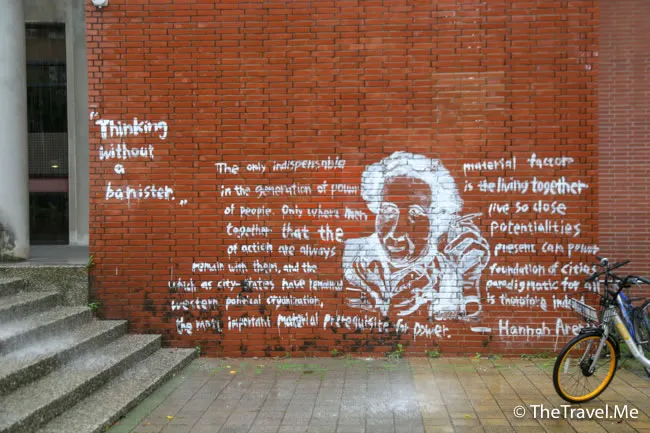 "Thinking
without
a
banister."
The only indispensable material factor
in the generation of power is the living together
of people. Only where men live so close
together that the potentialities
of action are always present can power
remain with them, and the foundation of cities
which as city-states have remained paradigmatic for all
western political organization, is therefore
the most important material prerequisite for power. — Hannah
© TheTravel.Me